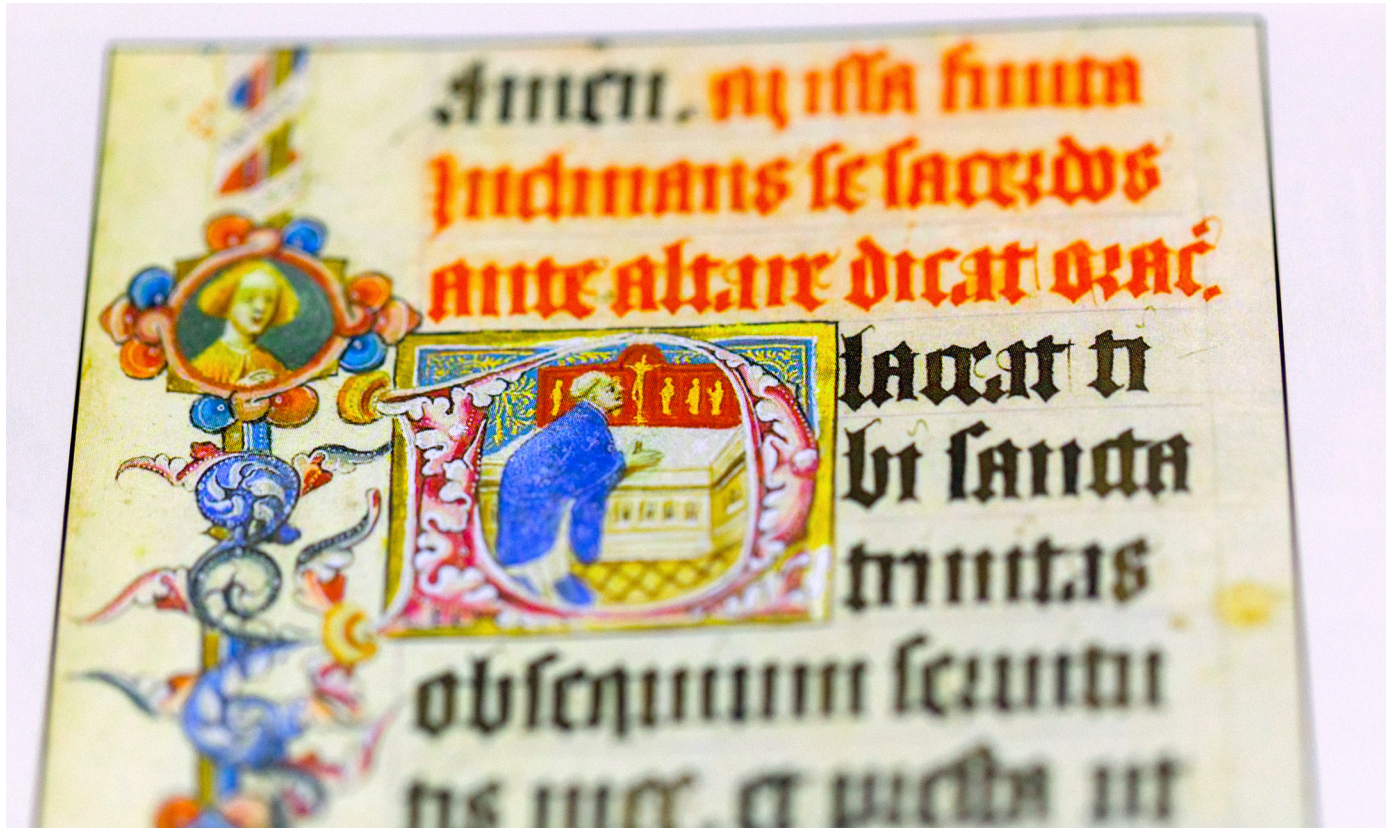 Amen. Missa finita
Inclinans se sacerdos
ante altare dicat orac̄.
Placeat ti
bi sancta
trinitas
obsequium seruitu
tis mee. et presta ut